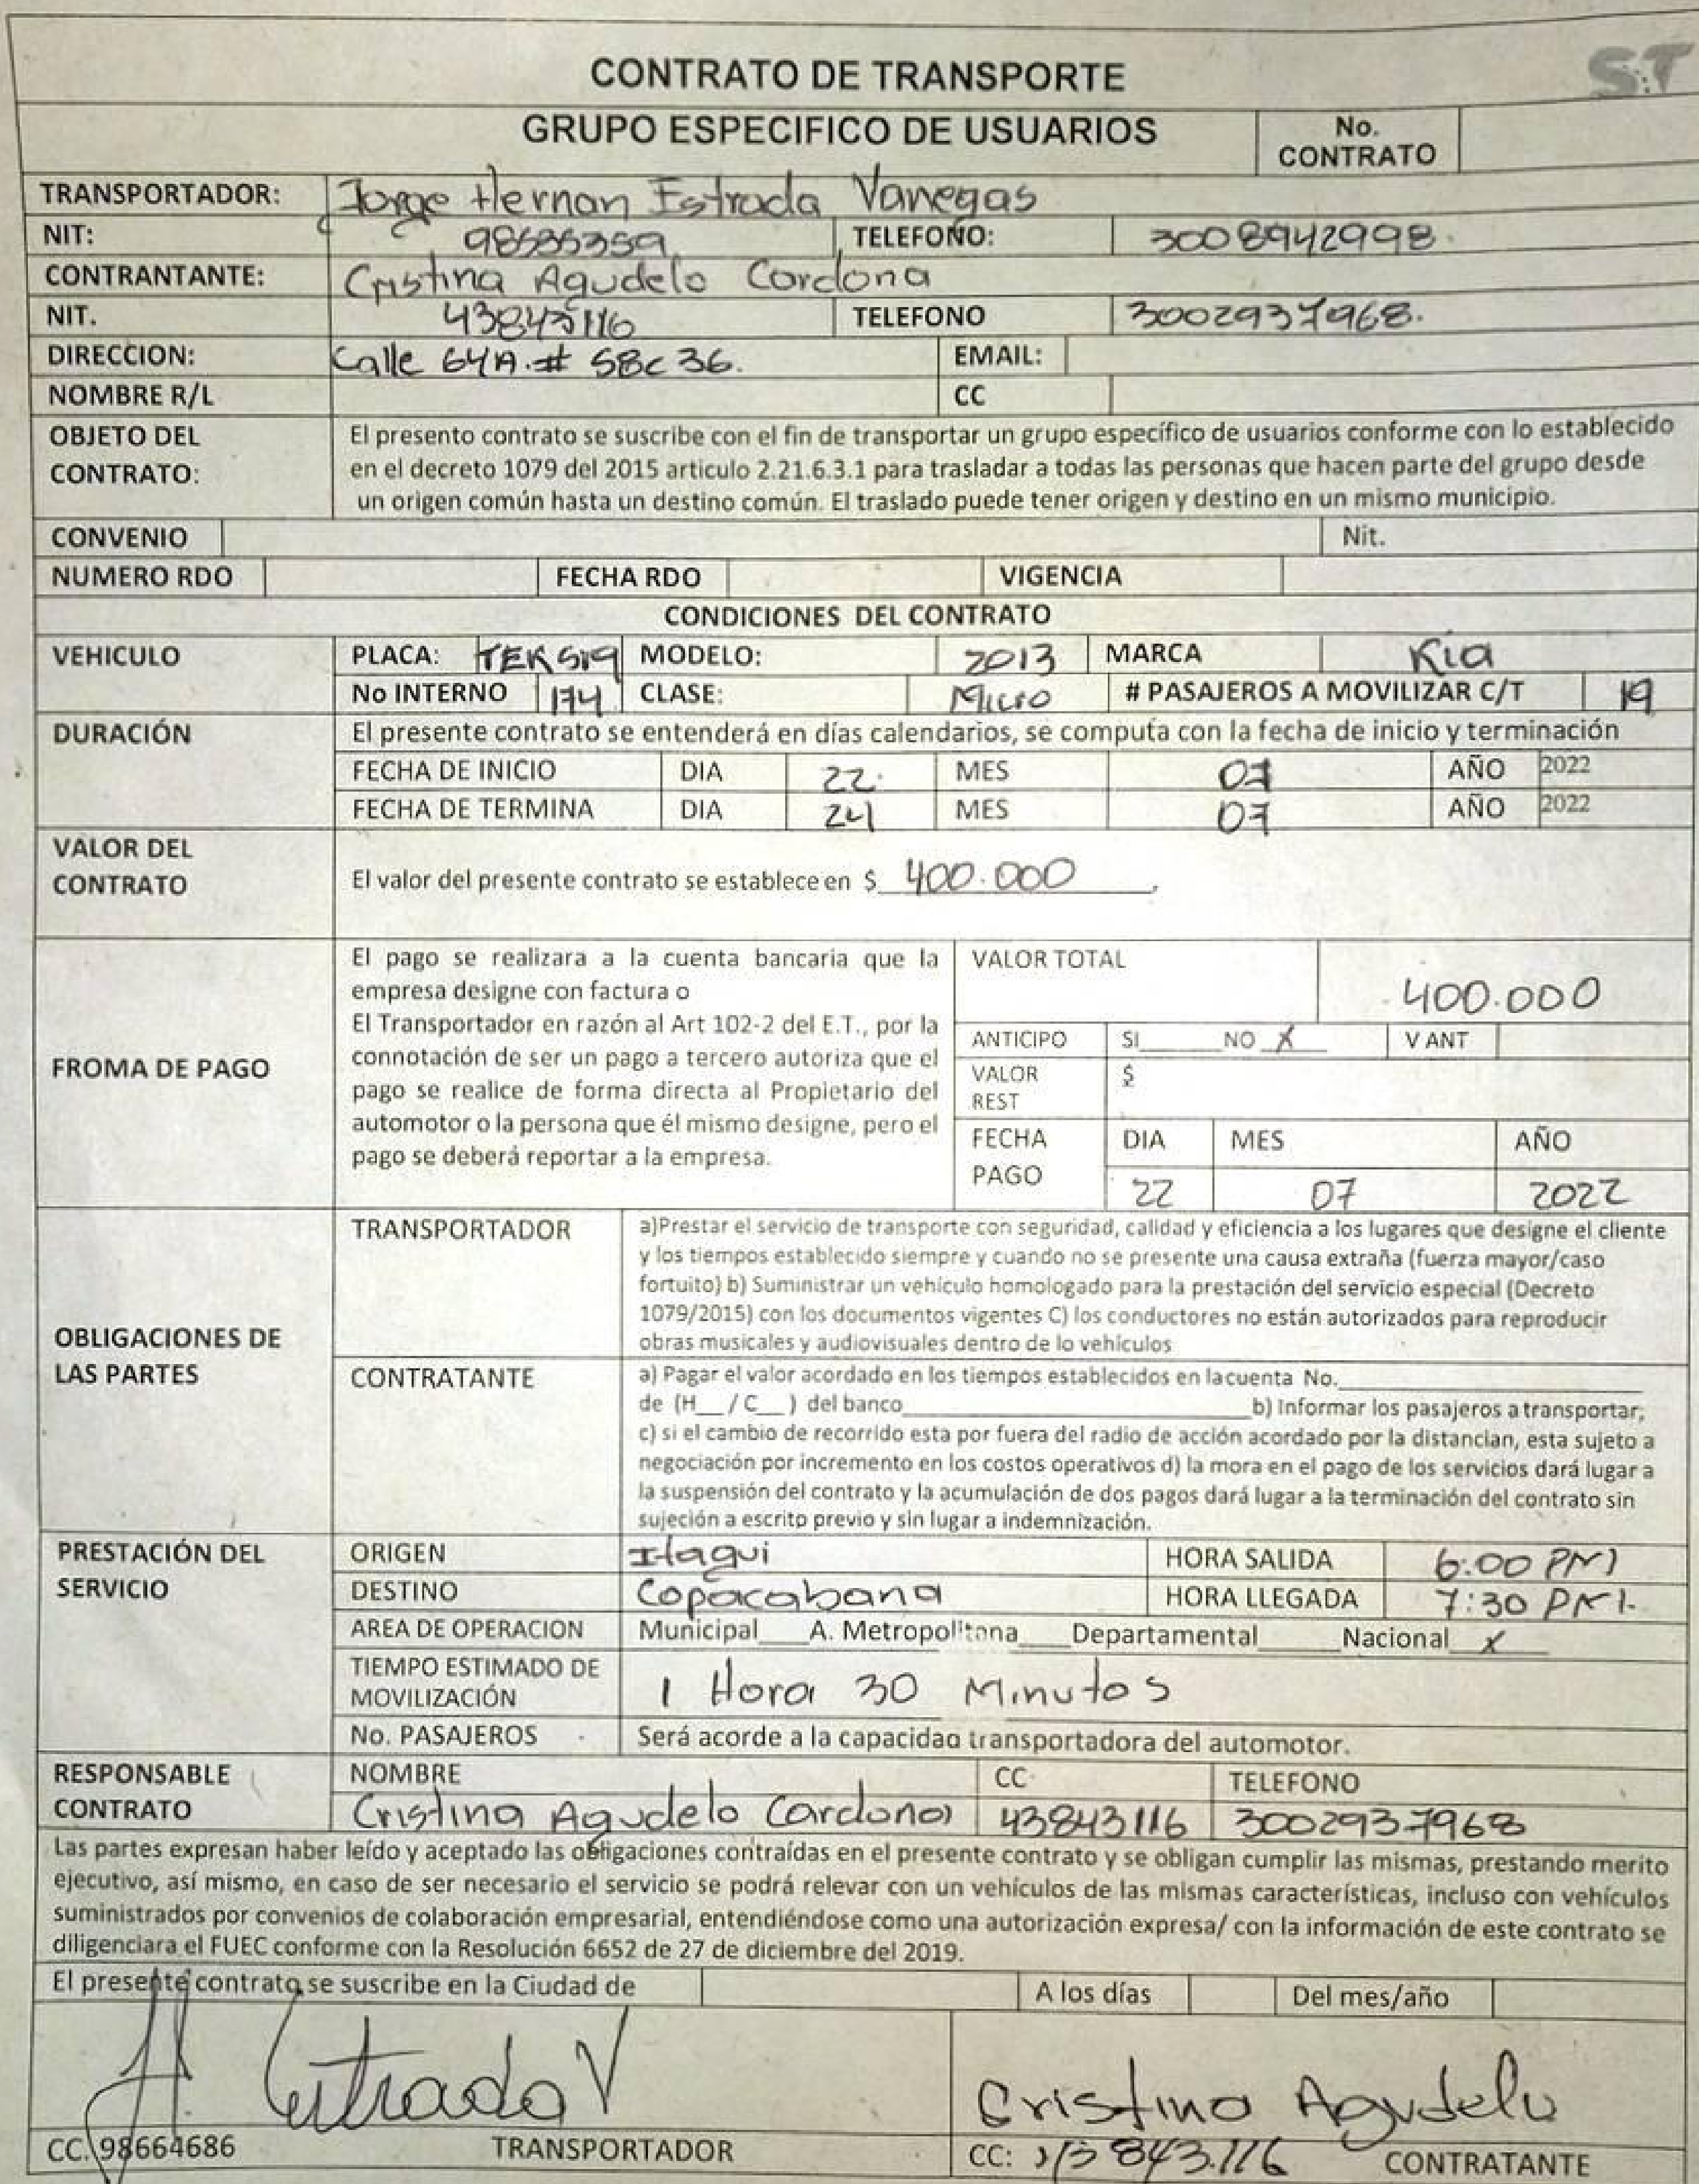 ST
CONTRATO DE TRANSPORTE
GRUPO ESPECIFICO DE USUARIOS
No. CONTRATO
TRANSPORTADOR: Jorge Hernan Estrada Vanegas
NIT: 98585359 TELEFOÑO: 3008942998.
CONTRANTANTE: Cristina Agudelo Cordona
NIT. 43843116 TELEFONO 3002937968.
DIRECCION: Calle 64A.# 58c 36. EMAIL:
NOMBRE R/L CC
OBJETO DEL CONTRATO: El presento contrato se suscribe con el fin de transportar un grupo específico de usuarios conforme con lo establecido
en el decreto 1079 del 2015 articulo 2.21.6.3.1 para trasladar a todas las personas que hacen parte del grupo desde
un origen común hasta un destino común. El traslado puede tener origen y destino en un mismo municipio.
CONVENIO Nit.
NUMERO RDO FECHA RDO VIGENCIA
CONDICIONES DEL CONTRATO
VEHICULO PLACA: TEK519 MODELO: 2013 MARCA Kia
No INTERNO 174 CLASE: Micro # PASAJEROS A MOVILIZAR C/T 19
DURACIÓN El presente contrato se entenderá en días calendarios, se computa con la fecha de inicio y terminación
FECHA DE INICIO DIA 22. MES 07 AÑO 2022
FECHA DE TERMINA DIA 24 MES 07 AÑO 2022
VALOR DEL CONTRATO El valor del presente contrato se establece en $ 400.000
FROMA DE PAGO
El pago se realizara a la cuenta bancaria que la
empresa designe con factura o
El Transportador en razón al Art 102-2 del E.T., por la
connotación de ser un pago a tercero autoriza que el
pago se realice de forma directa al Propietario del
automotor o la persona que él mismo designe, pero el
pago se deberá reportar a la empresa.
VALOR TOTAL 400.000
ANTICIPO SI____ NO X V ANT
VALOR REST $
FECHA PAGO DIA MES AÑO
22 07 2022
OBLIGACIONES DE LAS PARTES
TRANSPORTADOR a)Prestar el servicio de transporte con seguridad, calidad y eficiencia a los lugares que designe el cliente
y los tiempos establecido siempre y cuando no se presente una causa extraña (fuerza mayor/caso
fortuito) b) Suministrar un vehículo homologado para la prestación del servicio especial (Decreto
1079/2015) con los documentos vigentes C) los conductores no están autorizados para reproducir
obras musicales y audiovisuales dentro de lo vehículos
CONTRATANTE a) Pagar el valor acordado en los tiempos establecidos en lacuenta No.____
de (H__/C__) del banco____ b) Informar los pasajeros a transportar;
c) si el cambio de recorrido esta por fuera del radio de acción acordado por la distancian, esta sujeto a
negociación por incremento en los costos operativos d) la mora en el pago de los servicios dará lugar a
la suspensión del contrato y la acumulación de dos pagos dará lugar a la terminación del contrato sin
sujeción a escrito previo y sin lugar a indemnización.
PRESTACIÓN DEL SERVICIO
ORIGEN Itagui HORA SALIDA 6:00 PM
DESTINO Copacabana HORA LLEGADA 7:30 PM.
AREA DE OPERACION Municipal____A. Metropolitana____Departamental____Nacional X
TIEMPO ESTIMADO DE MOVILIZACIÓN 1 Hora 30 Minutos
No. PASAJEROS Será acorde a la capacidad transportadora del automotor.
RESPONSABLE CONTRATO NOMBRE CC TELEFONO
Cristina Agudelo Cardona 43843116 3002937968
Las partes expresan haber leído y aceptado las obligaciones contraídas en el presente contrato y se obligan cumplir las mismas, prestando merito
ejecutivo, así mismo, en caso de ser necesario el servicio se podrá relevar con un vehículos de las mismas características, incluso con vehículos
suministrados por convenios de colaboración empresarial, entendiéndose como una autorización expresa/ con la información de este contrato se
diligenciara el FUEC conforme con la Resolución 6652 de 27 de diciembre del 2019.
El presente contrato se suscribe en la Ciudad de A los días Del mes/año
Estrada V Cristina Agudelo
CC. 98664686 TRANSPORTADOR CC: 43843.116 CONTRATANTE